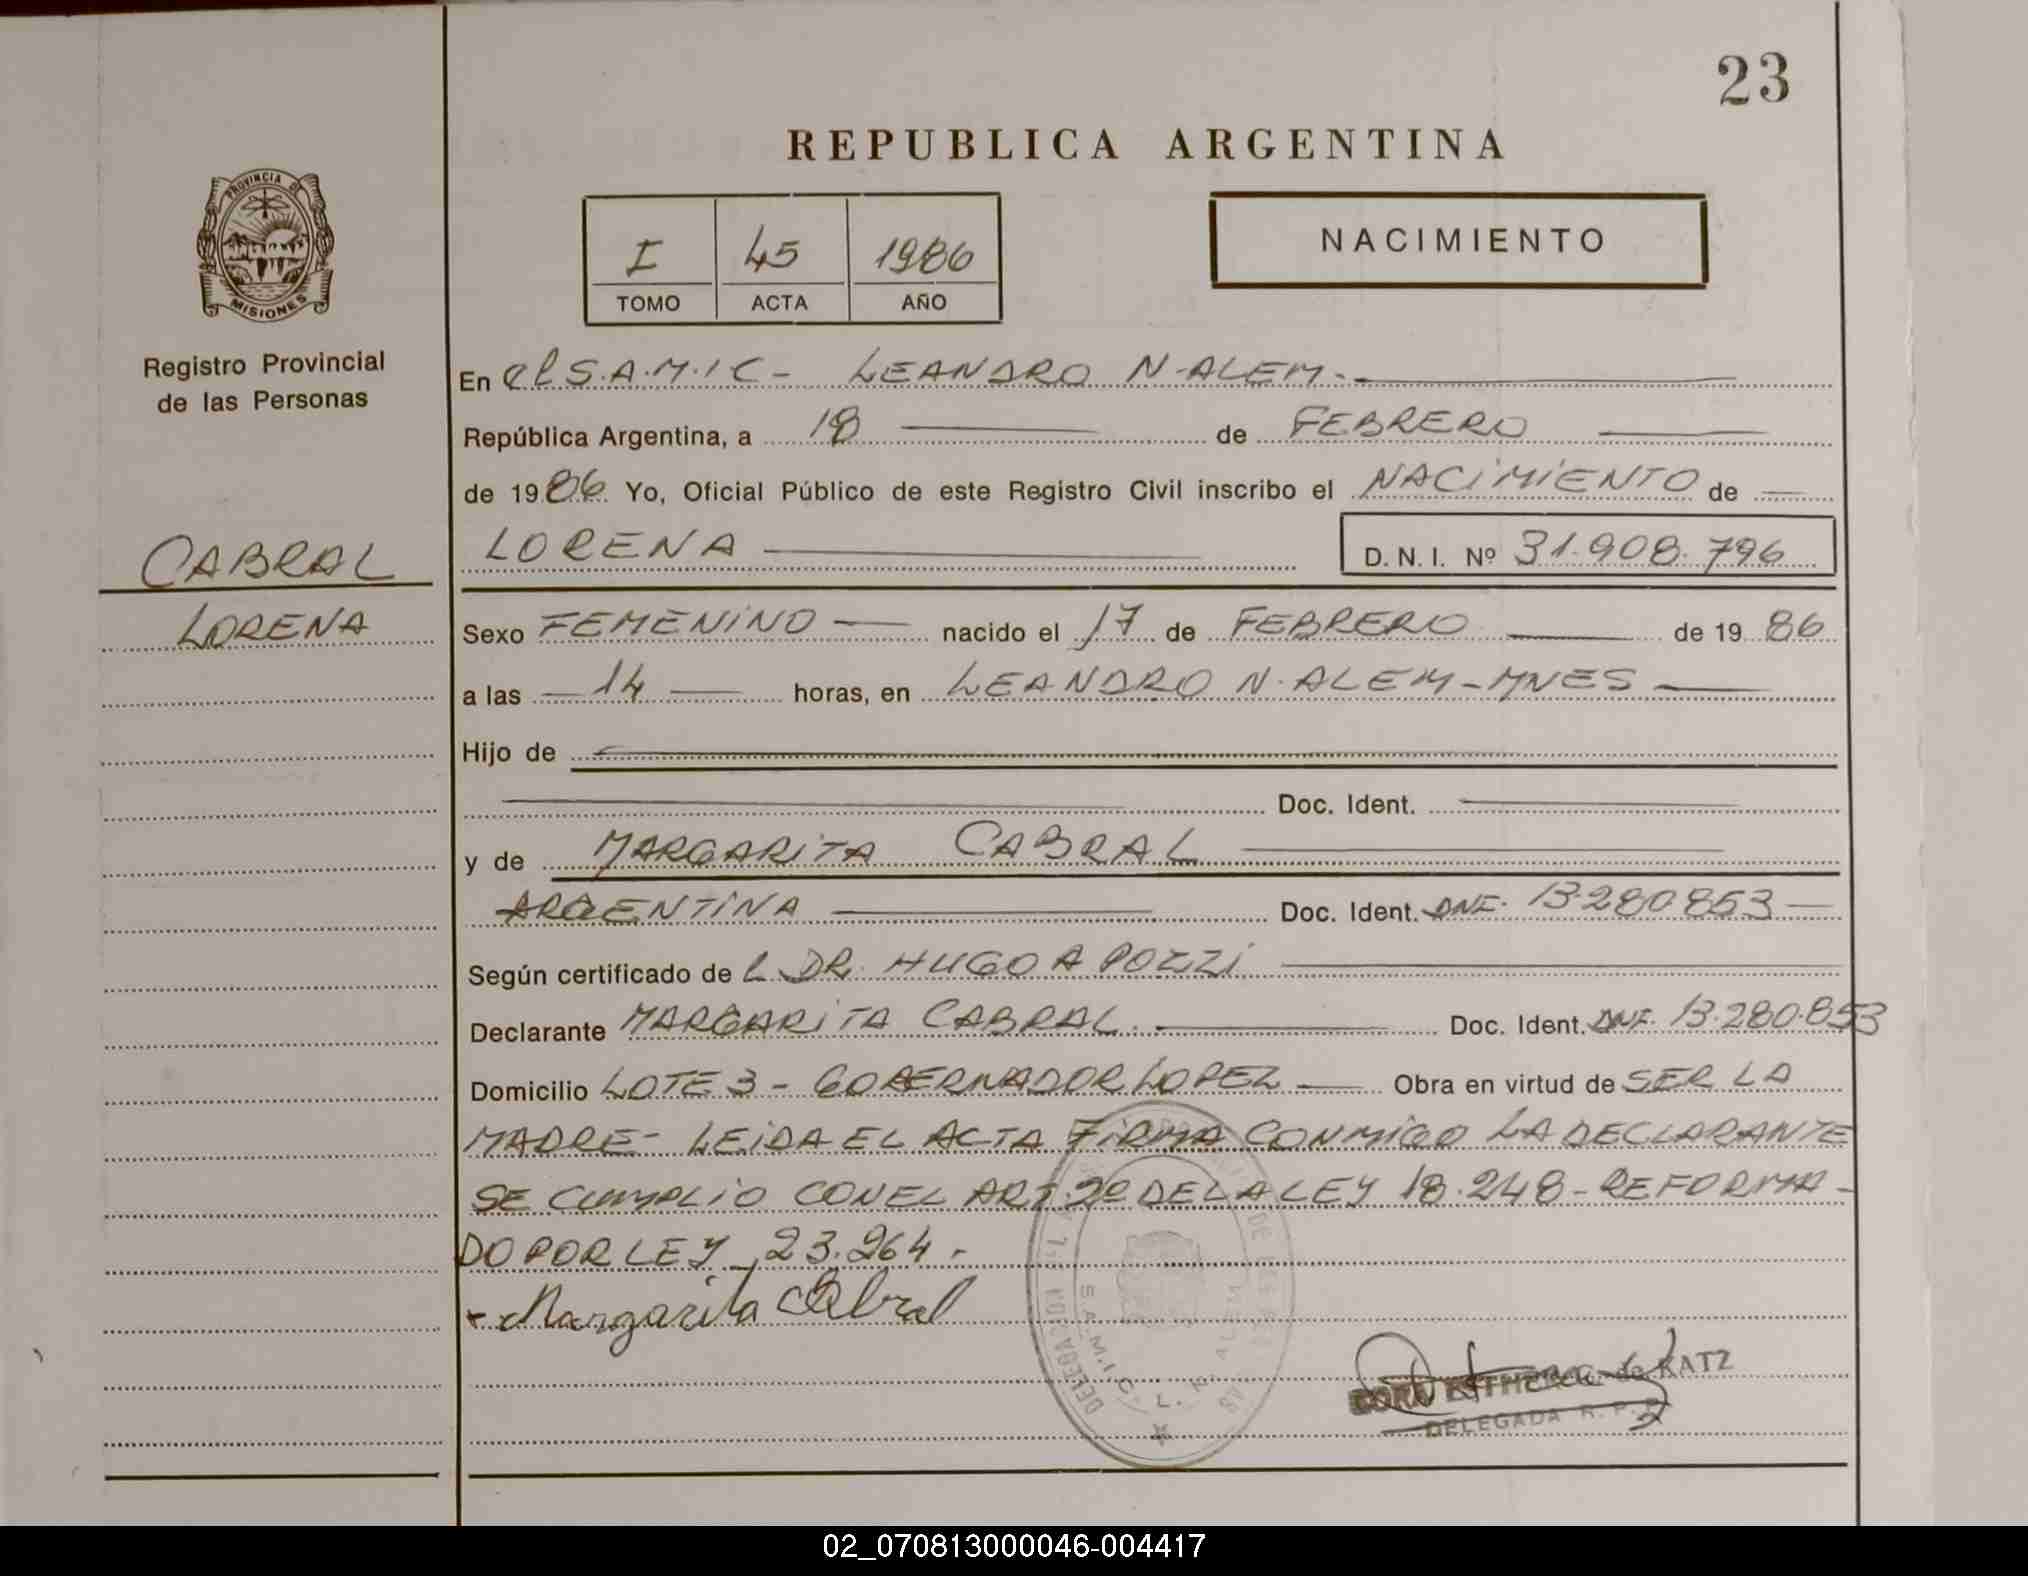 23
REPUBLICA ARGENTINA
PROVINCIA DE
MISIONES
Registro Provincial
de las Personas
I 45 1986
TOMO ACTA AÑO
NACIMIENTO
En el S.A.M.I.C- LEANDRO N-ALEM.-
República Argentina, a 18 de FEBRERO
de 1986 Yo, Oficial Público de este Registro Civil inscribo el NACIMIENTO de
LORENA D.N.I. Nº 31.908.796
CABRAL
LORENA
Sexo FEMENINO nacido el 17 de FEBRERO de 1986
a las 14 horas, en LEANDRO N. ALEM-MNES
Hijo de
Doc. Ident.
y de MARGARITA CABRAL
ARGENTINA Doc. Ident. DNI. 13.280.853
Según certificado de L DR. HUGO A POZZI
Declarante MARGARITA CABRAL. Doc. Ident. DNI. 13.280.853
Domicilio LOTE 3 - GOBERNADOR LOPEZ Obra en virtud de SER LA
MADRE- LEIDA EL ACTA FIRMA CONMIGO LA DECLARANTE
SE CUMPLIO CON EL ART. 2º DE LA LEY 18.248-REFORMA-
DO POR LEY 23.264.-
Margarita Cabral
DELEGACION
S.A.M.I.C. L. N. ALEM
DORA ESTHER G. de KATZ
DELEGADA R.P.P.
02_070813000046-004417